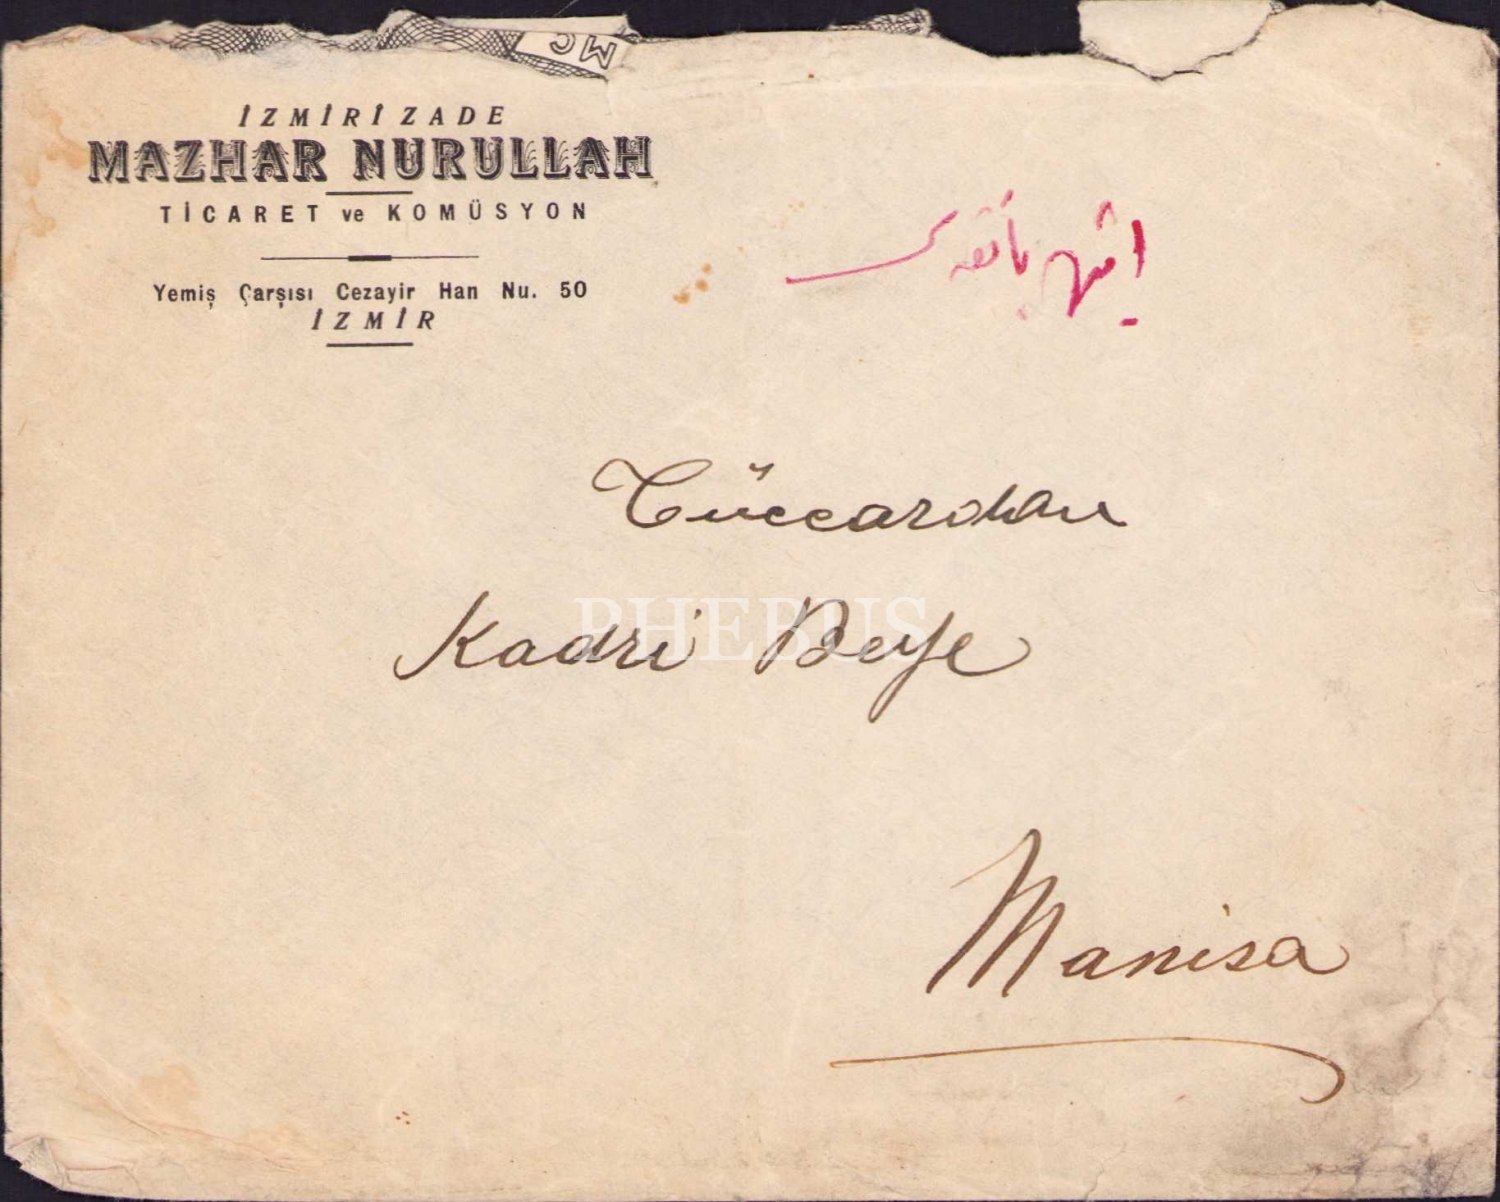 MC
İZMİRİZADE
MAZHAR NURULLAH
TİCARET ve KOMÜSYON
Yemiş Çarşısı Cezayir Han Nu. 50
İZMİR
Tüccardan
Kadri Beye
PHEBUS
Manisa